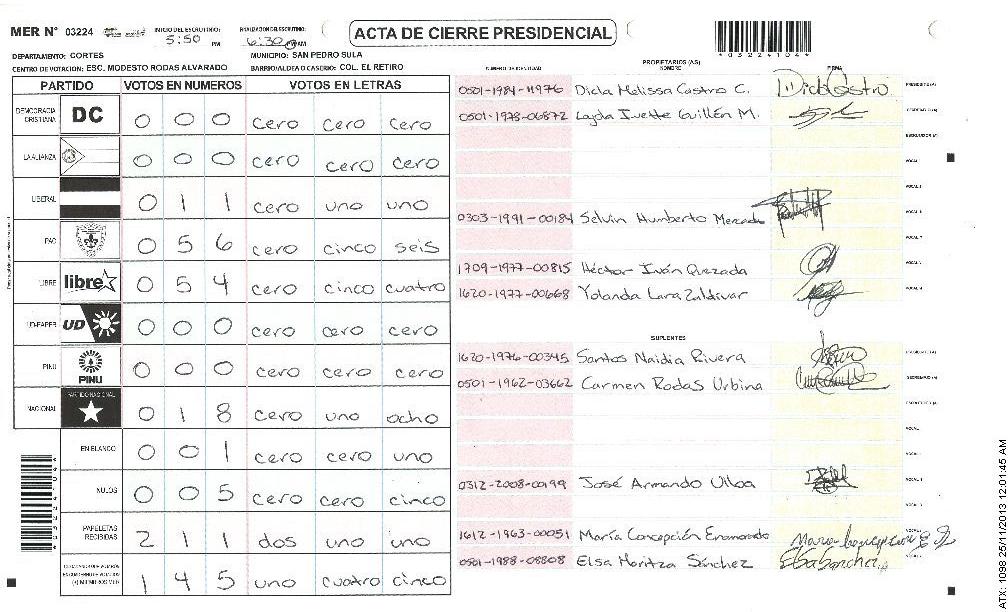 MER Nº 03224
INICIO DEL ESCRUTINIO: 5:50 PM
FINALIZACION DEL ESCRUTINIO: 6:30 PM AM
ACTA DE CIERRE PRESIDENCIAL
*03224104*
DEPARTAMENTO: CORTES
MUNICIPIO: SAN PEDRO SULA
CENTRO DE VOTACION: ESC. MODESTO RODAS ALVARADO
BARRIO/ALDEA O CASERIO: COL. EL RETIRO
PARTIDO VOTOS EN NUMEROS VOTOS EN LETRAS
DEMOCRACIA CRISTIANA DC 0 0 0 cero cero cero
LA ALIANZA 0 0 0 cero cero cero
LIBERAL 0 1 1 cero uno uno
PAC 0 5 6 cero cinco seis
LIBRE libre 0 5 4 cero cinco cuatro
UD-FAPER UD 0 0 0 cero cero cero
PINU PINU 0 0 0 cero cero cero
NACIONAL PARTIDO NACIONAL 0 1 8 cero uno ocho
EN BLANCO 0 0 1 cero cero uno
NULOS 0 0 5 cero cero cinco
PAPELETAS RECIBIDAS 2 1 1 dos uno uno
1 4 5 uno cuatro cinco
PROPIETARIOS (AS)
NUMERO DE IDENTIDAD NOMBRE FIRMA
0501-1984-11976 Dicla Melissa Castro C. Dicla Castro PRESIDENTE (A)
0501-1978-06872 Layda Ivette Guillén M. SECRETARIO (A)
ESCRUTADOR (A)
VOCAL
VOCAL
0303-1991-00184 Selvin Humberto Mercado VOCAL
VOCAL
1709-1977-00815 Héctor Iván Quezada VOCAL
1620-1977-00668 Yolanda Lara Zaldivar VOCAL
SUPLENTES
1620-1976-00345 Santos Naidia Rivera PRESIDENTE (A)
0501-1962-03662 Carmen Rodas Urbina SECRETARIO (A)
ESCRUTADOR (A)
VOCAL
VOCAL
0312-2008-00199 José Armando Ulloa VOCAL
VOCAL
1612-1963-00051 María Concepción Enamorado Maria Concepcion E VOCAL
0501-1988-08808 Elsa Maritza Sánchez Elsa Sanchez VOCAL
ATX: 1098 25/11/2013 12:01:45 AM